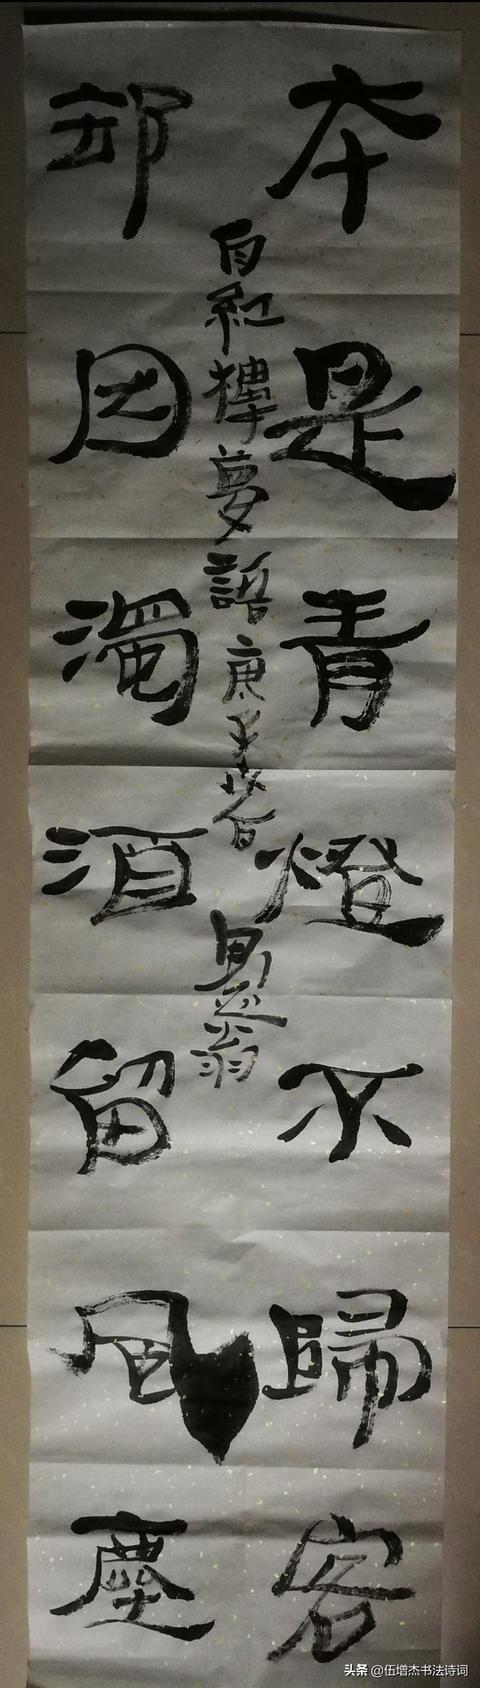 本是青燈不歸客
却因濁酒留風塵
自紅樓夢語庚子
翁
头条 @伍增杰书法诗词